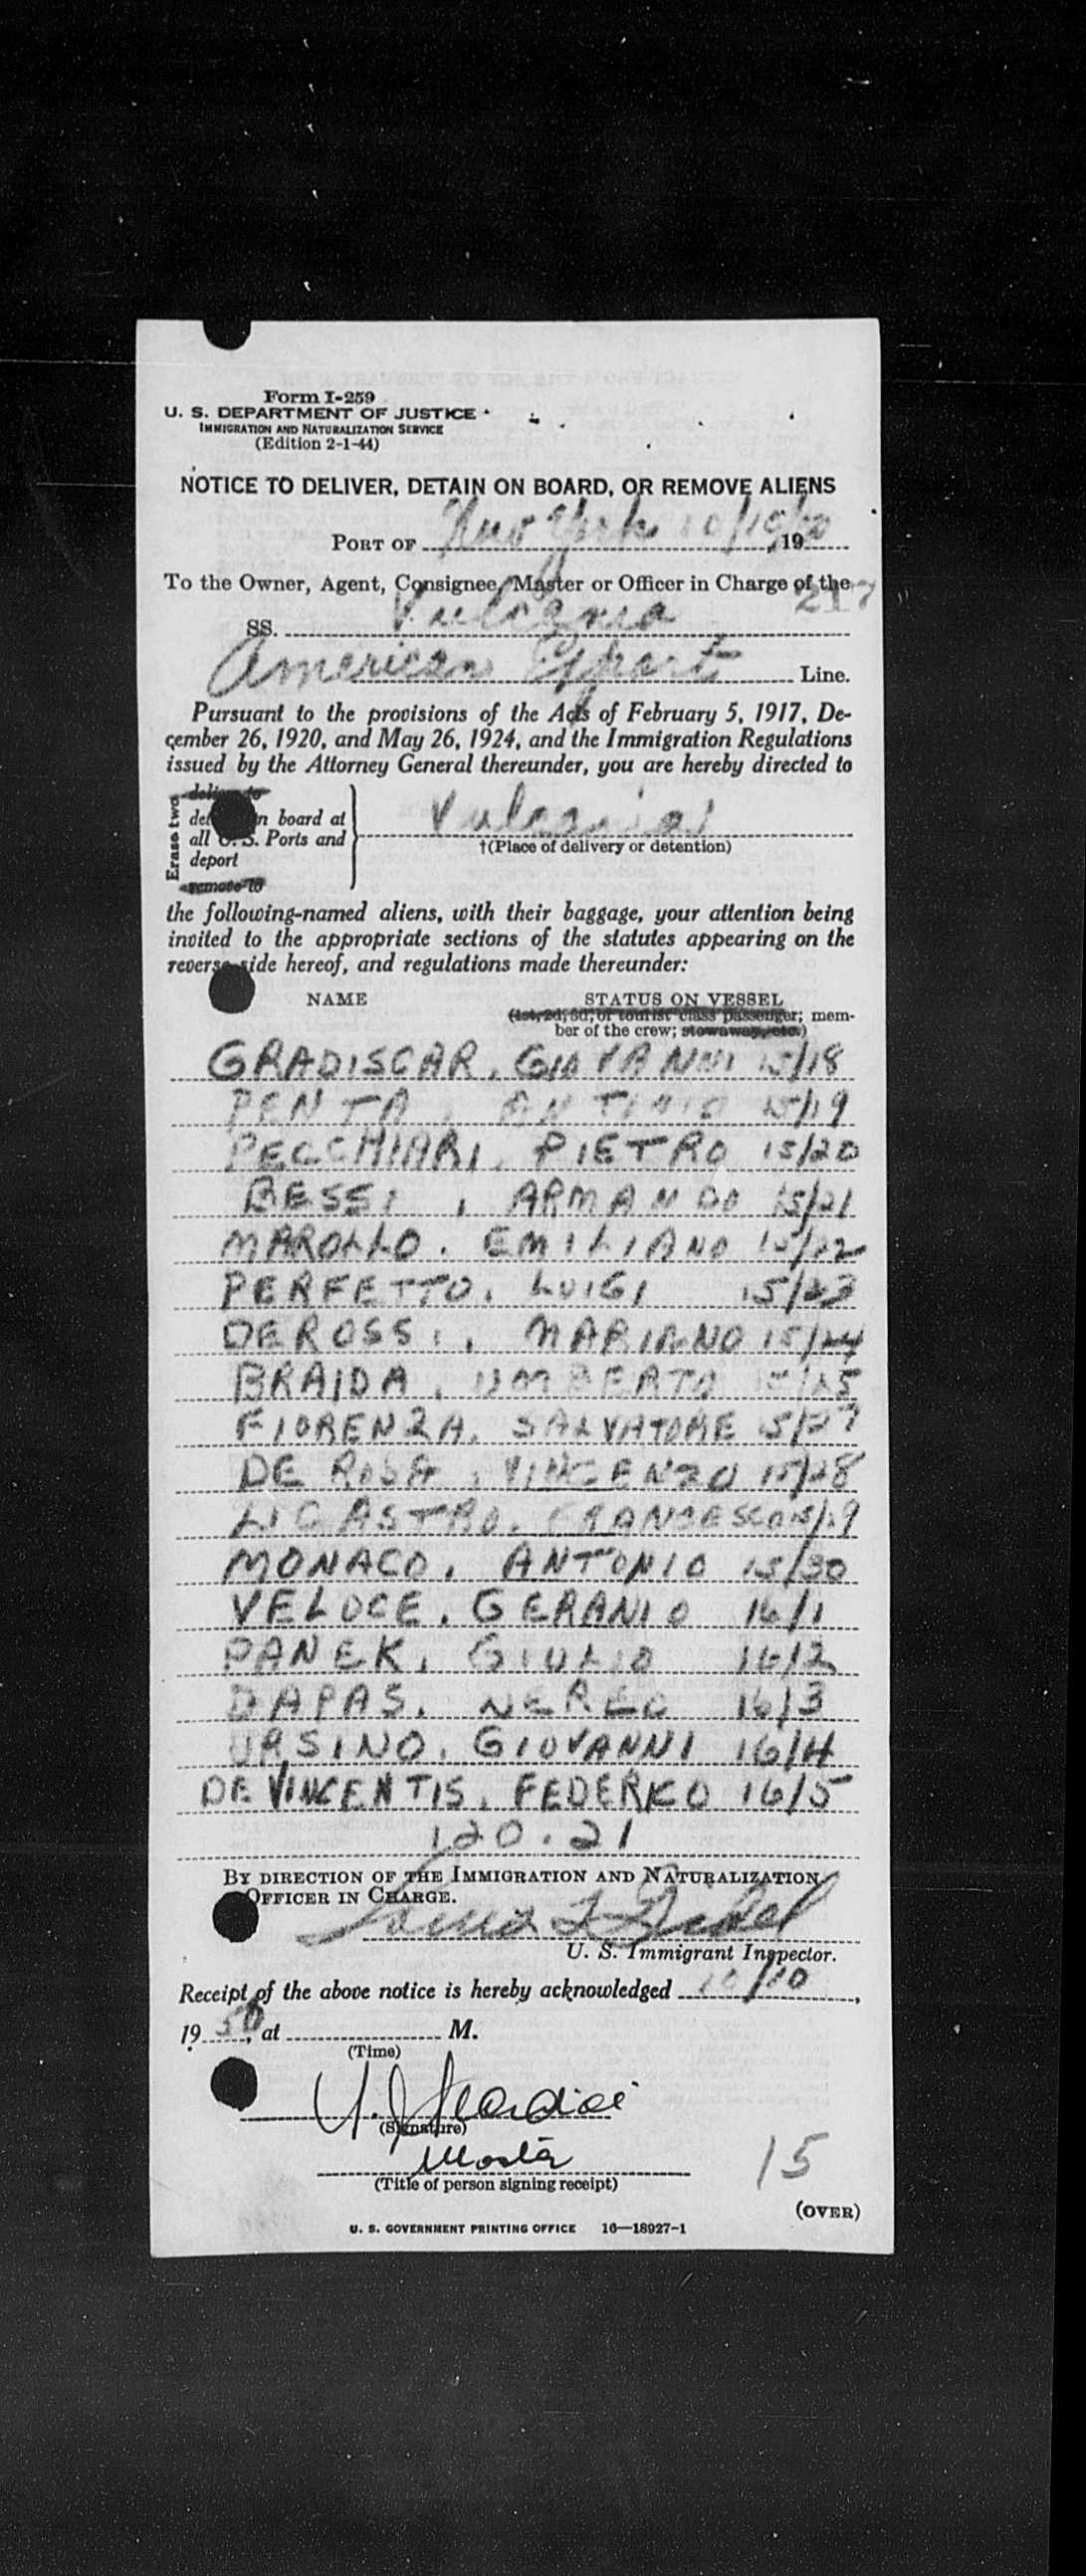 Form I-259
U. S. DEPARTMENT OF JUSTICE
IMMIGRATION AND NATURALIZATION SERVICE
(Edition 2-1-44)
NOTICE TO DELIVER, DETAIN ON BOARD, OR REMOVE ALIENS
PORT OF New York 10/10/50, 19
To the Owner, Agent, Consignee, Master or Officer in Charge of the
217
SS. Vulcania
American Export Line.
Pursuant to the provisions of the Acts of February 5, 1917, De-
cember 26, 1920, and May 26, 1924, and the Immigration Regulations
issued by the Attorney General thereunder, you are hereby directed to
Erase two
deliver to
on board at
all U. S. Ports and
deport
remove to
Vulcania
†(Place of delivery or detention)
the following-named aliens, with their baggage, your attention being
invited to the appropriate sections of the statutes appearing on the
reverse side hereof, and regulations made thereunder:
NAME STATUS ON VESSEL
(1st, 2d, 3d, or tourist class passenger; mem-
ber of the crew; stowaway, etc.)
GRADISCAR, GIOVANNI 15/18
PENTA, ANTIMIO 15/19
PECCHIARI, PIETRO 15/20
BESSI, ARMANDO 15/21
MAROLLO. EMILIANO 15/22
PERFETTO. LUIGI 15/23
DEROSSI, MARIANO 15/24
BRAIDA, UMBERTO 15/25
FIORENZA, SALVATORE 15/27
DE ROSA, VINCENZO 15/28
LIGASTRO, FRANCESCO 15/29
MONACO, ANTONIO 15/30
VELOCE, GERANIO 16/1
PANEK, GIULIO 16/2
DAPAS, NEREO 16/3
URSINO, GIOVANNI 16/4
DE VINCENTIS, FEDERICO 16/5
120.21
BY DIRECTION OF THE IMMIGRATION AND NATURALIZATION
OFFICER IN CHARGE.
U. S. Immigrant Inspector.
Receipt of the above notice is hereby acknowledged 10/10,
19 50, at M.
(Time)
(Signature)
Master
(Title of person signing receipt)
15
(OVER)
U. S. GOVERNMENT PRINTING OFFICE 16—18927-1